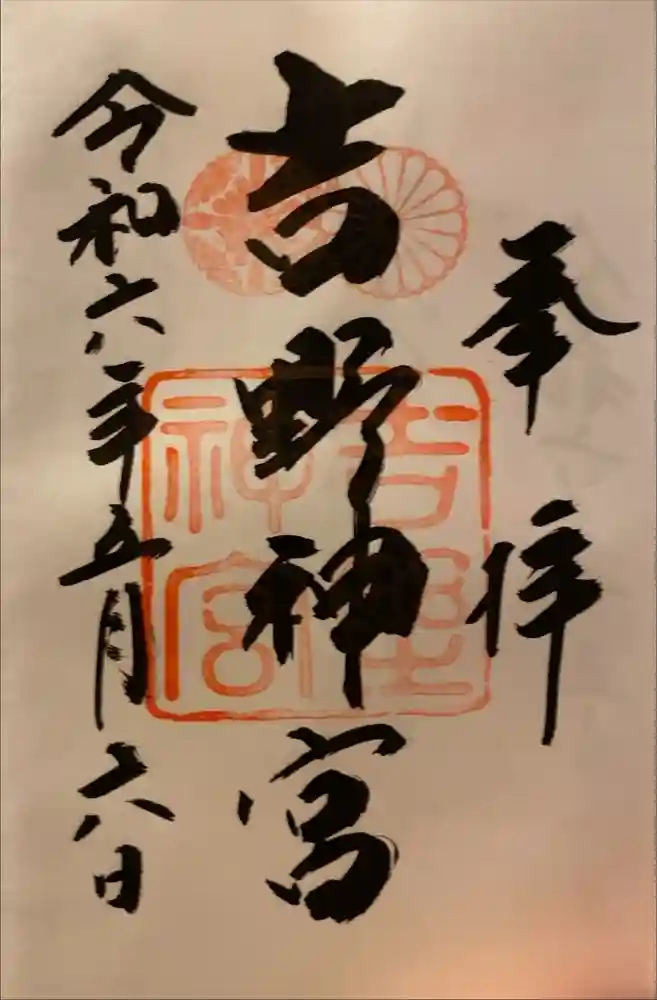 奉拝
吉野神宮
吉野神宮
令和六年五月六日